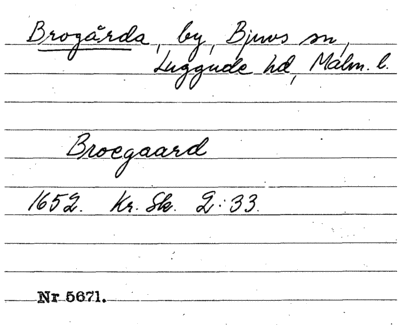 Brogårda, by, Bjuvs sn,
Luggude hd, Malm. l.
Broegaard
1652. Kr. Sk. 2:33.
Nr 5671.